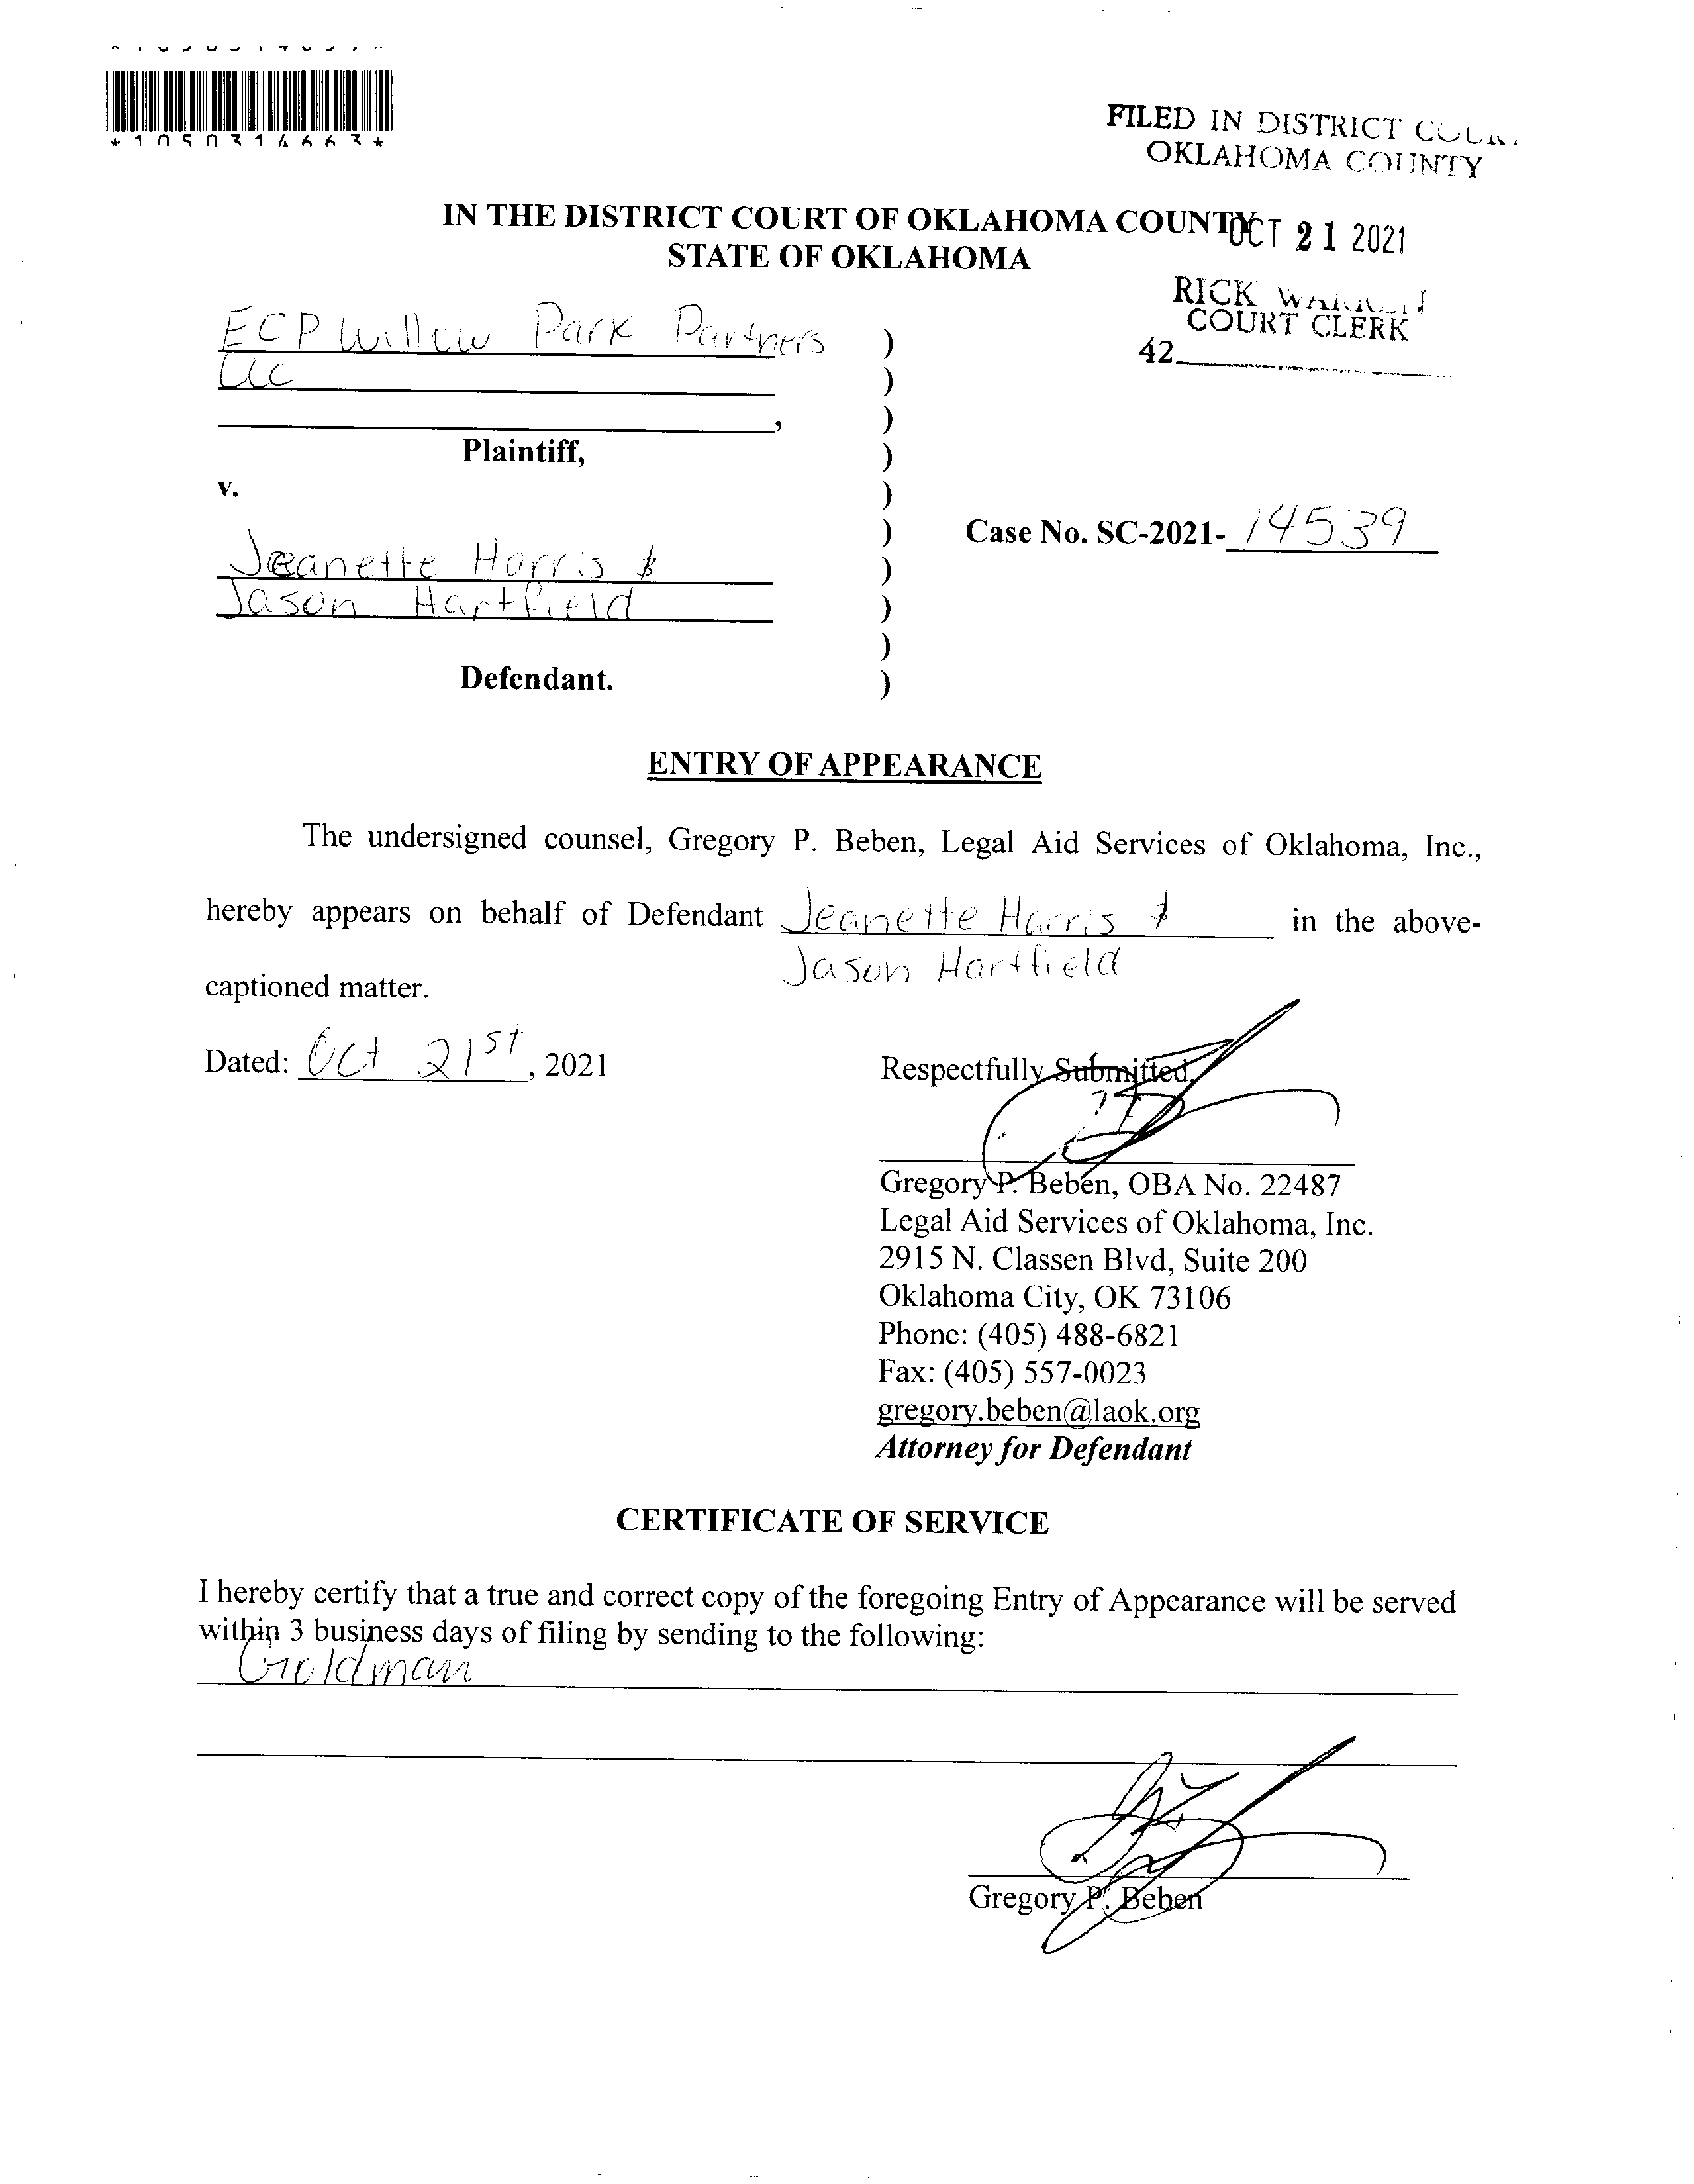 *1050314663*
FILED IN DISTRICT
OKLAHOMA COUNTY
IN THE DISTRICT COURT OF OKLAHOMA COUNTY
OCT 21 2021
STATE OF OKLAHOMA
RICK
COURT CLERK
42
ECP Willow Park Partners )
LLC )
, )
Plaintiff, )
v. )
) Case No. SC-2021- 14539
Jeanette Harris & )
Jason Hartfield )
)
Defendant. )
ENTRY OF APPEARANCE
The undersigned counsel, Gregory P. Beben, Legal Aid Services of Oklahoma, Inc.,
hereby appears on behalf of Defendant Jeanette Harris & in the above-
Jason Hartfield
captioned matter.
Dated: Oct 21st, 2021
Respectfully Submitted,
Gregory P. Beben, OBA No. 22487
Legal Aid Services of Oklahoma, Inc.
2915 N. Classen Blvd, Suite 200
Oklahoma City, OK 73106
Phone: (405) 488-6821
Fax: (405) 557-0023
gregory.beben@laok.org
Attorney for Defendant
CERTIFICATE OF SERVICE
I hereby certify that a true and correct copy of the foregoing Entry of Appearance will be served
within 3 business days of filing by sending to the following:
Goldman
Gregory P. Beben